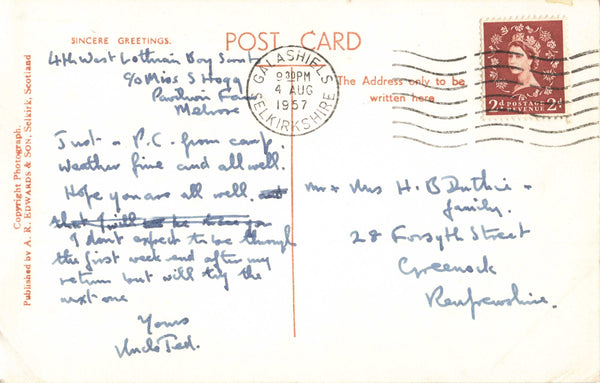 SINCERE GREETINGS.
POST CARD
4th West Lothian Boy Scouts
c/o Miss S Hogg
Farm
Melrose
Just a P.C. from camp.
Weather fine and all well.
Hope you are all well.
that I will be
I don't expect to be through
the first week end after my
return but will try the
next one
Yours
Uncle Ted.
Copyright Photograph.
Published by A. R. EDWARDS & SON, Selkirk, Scotland
GALASHIELS
9 30PM
4 AUG
1957
SELKIRKSHIRE
The Address only to be
written here
2D POSTAGE 2D
REVENUE
Mr & Mrs H. B Duthie &
family.
28 Forsyth Street
Greenock
Renfrewshire.